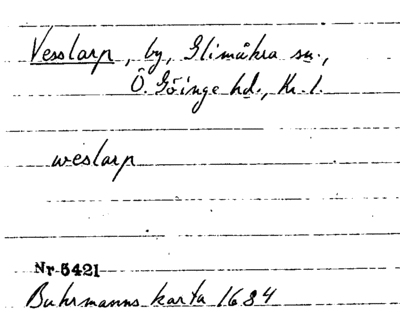 Vesslarp, by, Glimåkra sn.,
Ö. Göinge hd., Kr. l.
weslarp
Nr 5421
Buhrmanns karta 1684